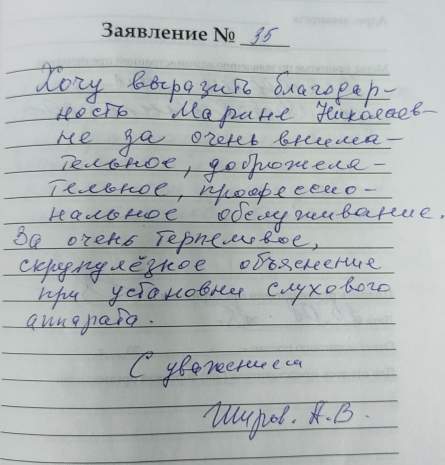 Заявление № 35
Хочу выразить благодар-
ность Марине Николаев-
не за очень внима-
тельное, доброжела-
тельное, профессио-
нальное обслуживание.
За очень терпеливое,
скрупулёзное объяснение
при установки слухового
аппарата.
С уважением
Шуров. А.В.